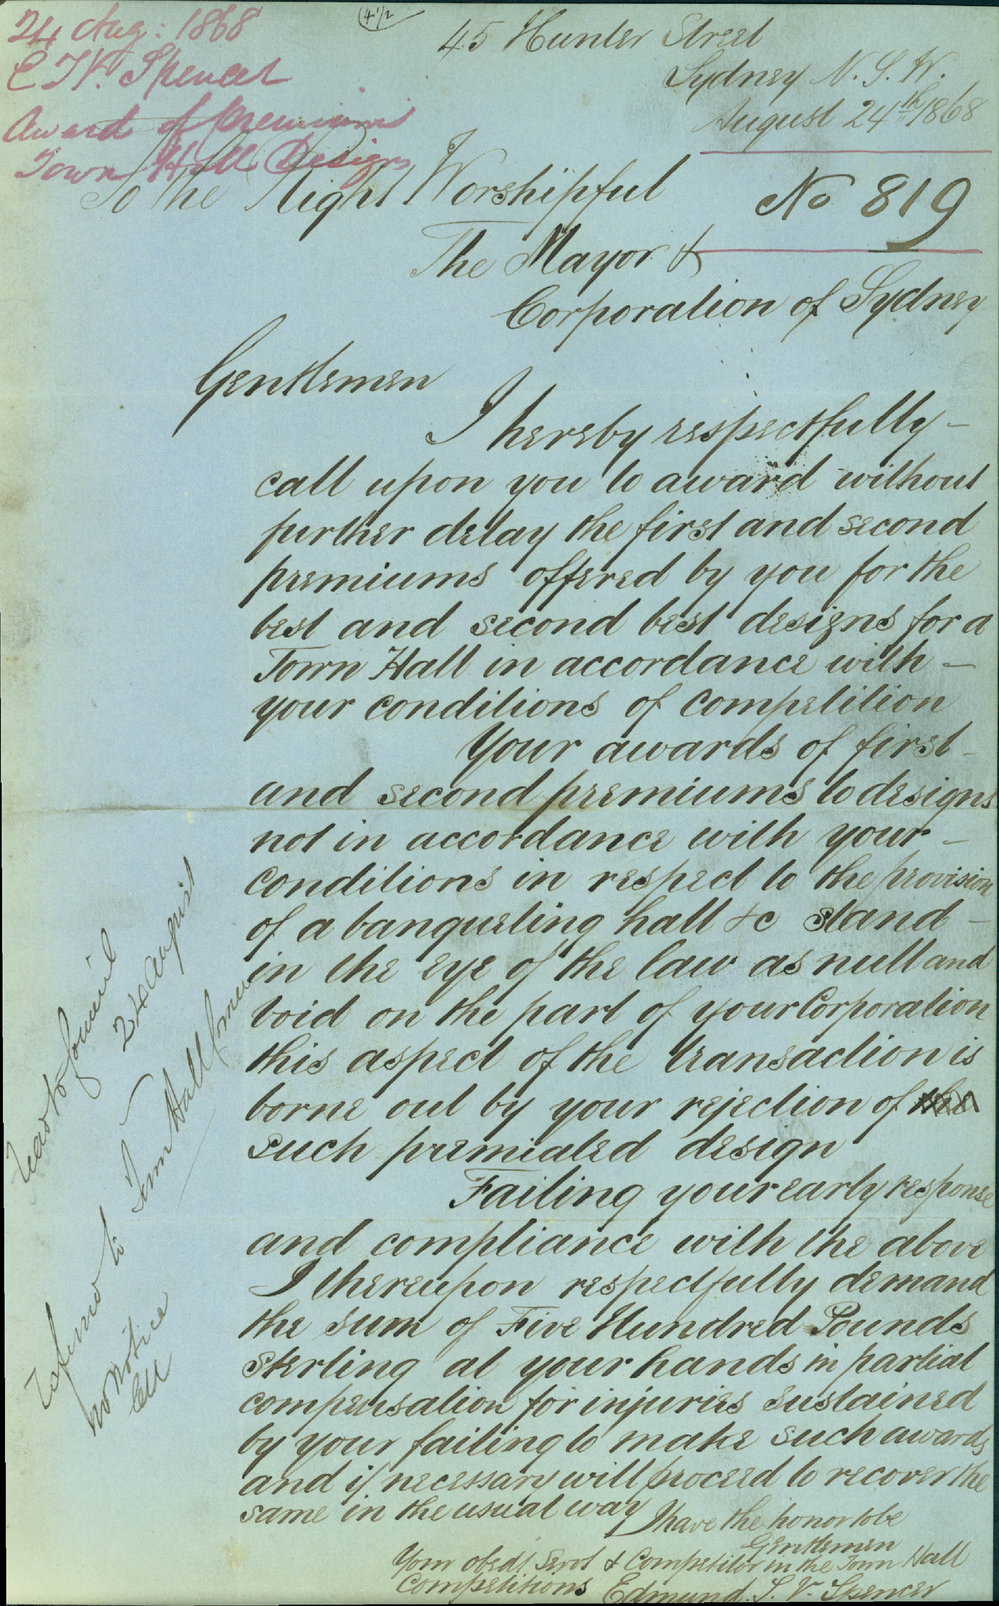 24 Aug: 1868
E T V. Spencer
Award of Premium
Town Hall Designs
4 1/2
45 Hunter Street
Sydney N. S. W.
August 24th 1868
No 819
To the Right Worshipful
The Mayor &
Corporation of Sydney
Gentlemen
I hereby respectfully -
call upon you to award without
further delay the first and second
premiums offered by you for the
best and second best designs for a
Town Hall in accordance with -
your conditions of competition
Your awards of first -
and second premiums to designs
not in accordance with your -
conditions in respect to the provision
of a banqueting hall &c stand -
in the eye of the law as null and
void on the part of your Corporation
this aspect of the transaction is
borne out by your rejection of
such premiated design
Failing your early response
and compliance with the above
I thereupon respectfully demand
the sum of Five Hundred Pounds
Sterling at your hands in partial
compensation for injuries sustained
by your failing to make such awards
and if necessary will proceed to recover the
same in the usual way
I have the honor to be
Gentlemen
Your obedt Servt & Competitor in the Town Hall
Competitions Edmund. T. V. Spencer
to Council
24 August
to Town Hall
no notice